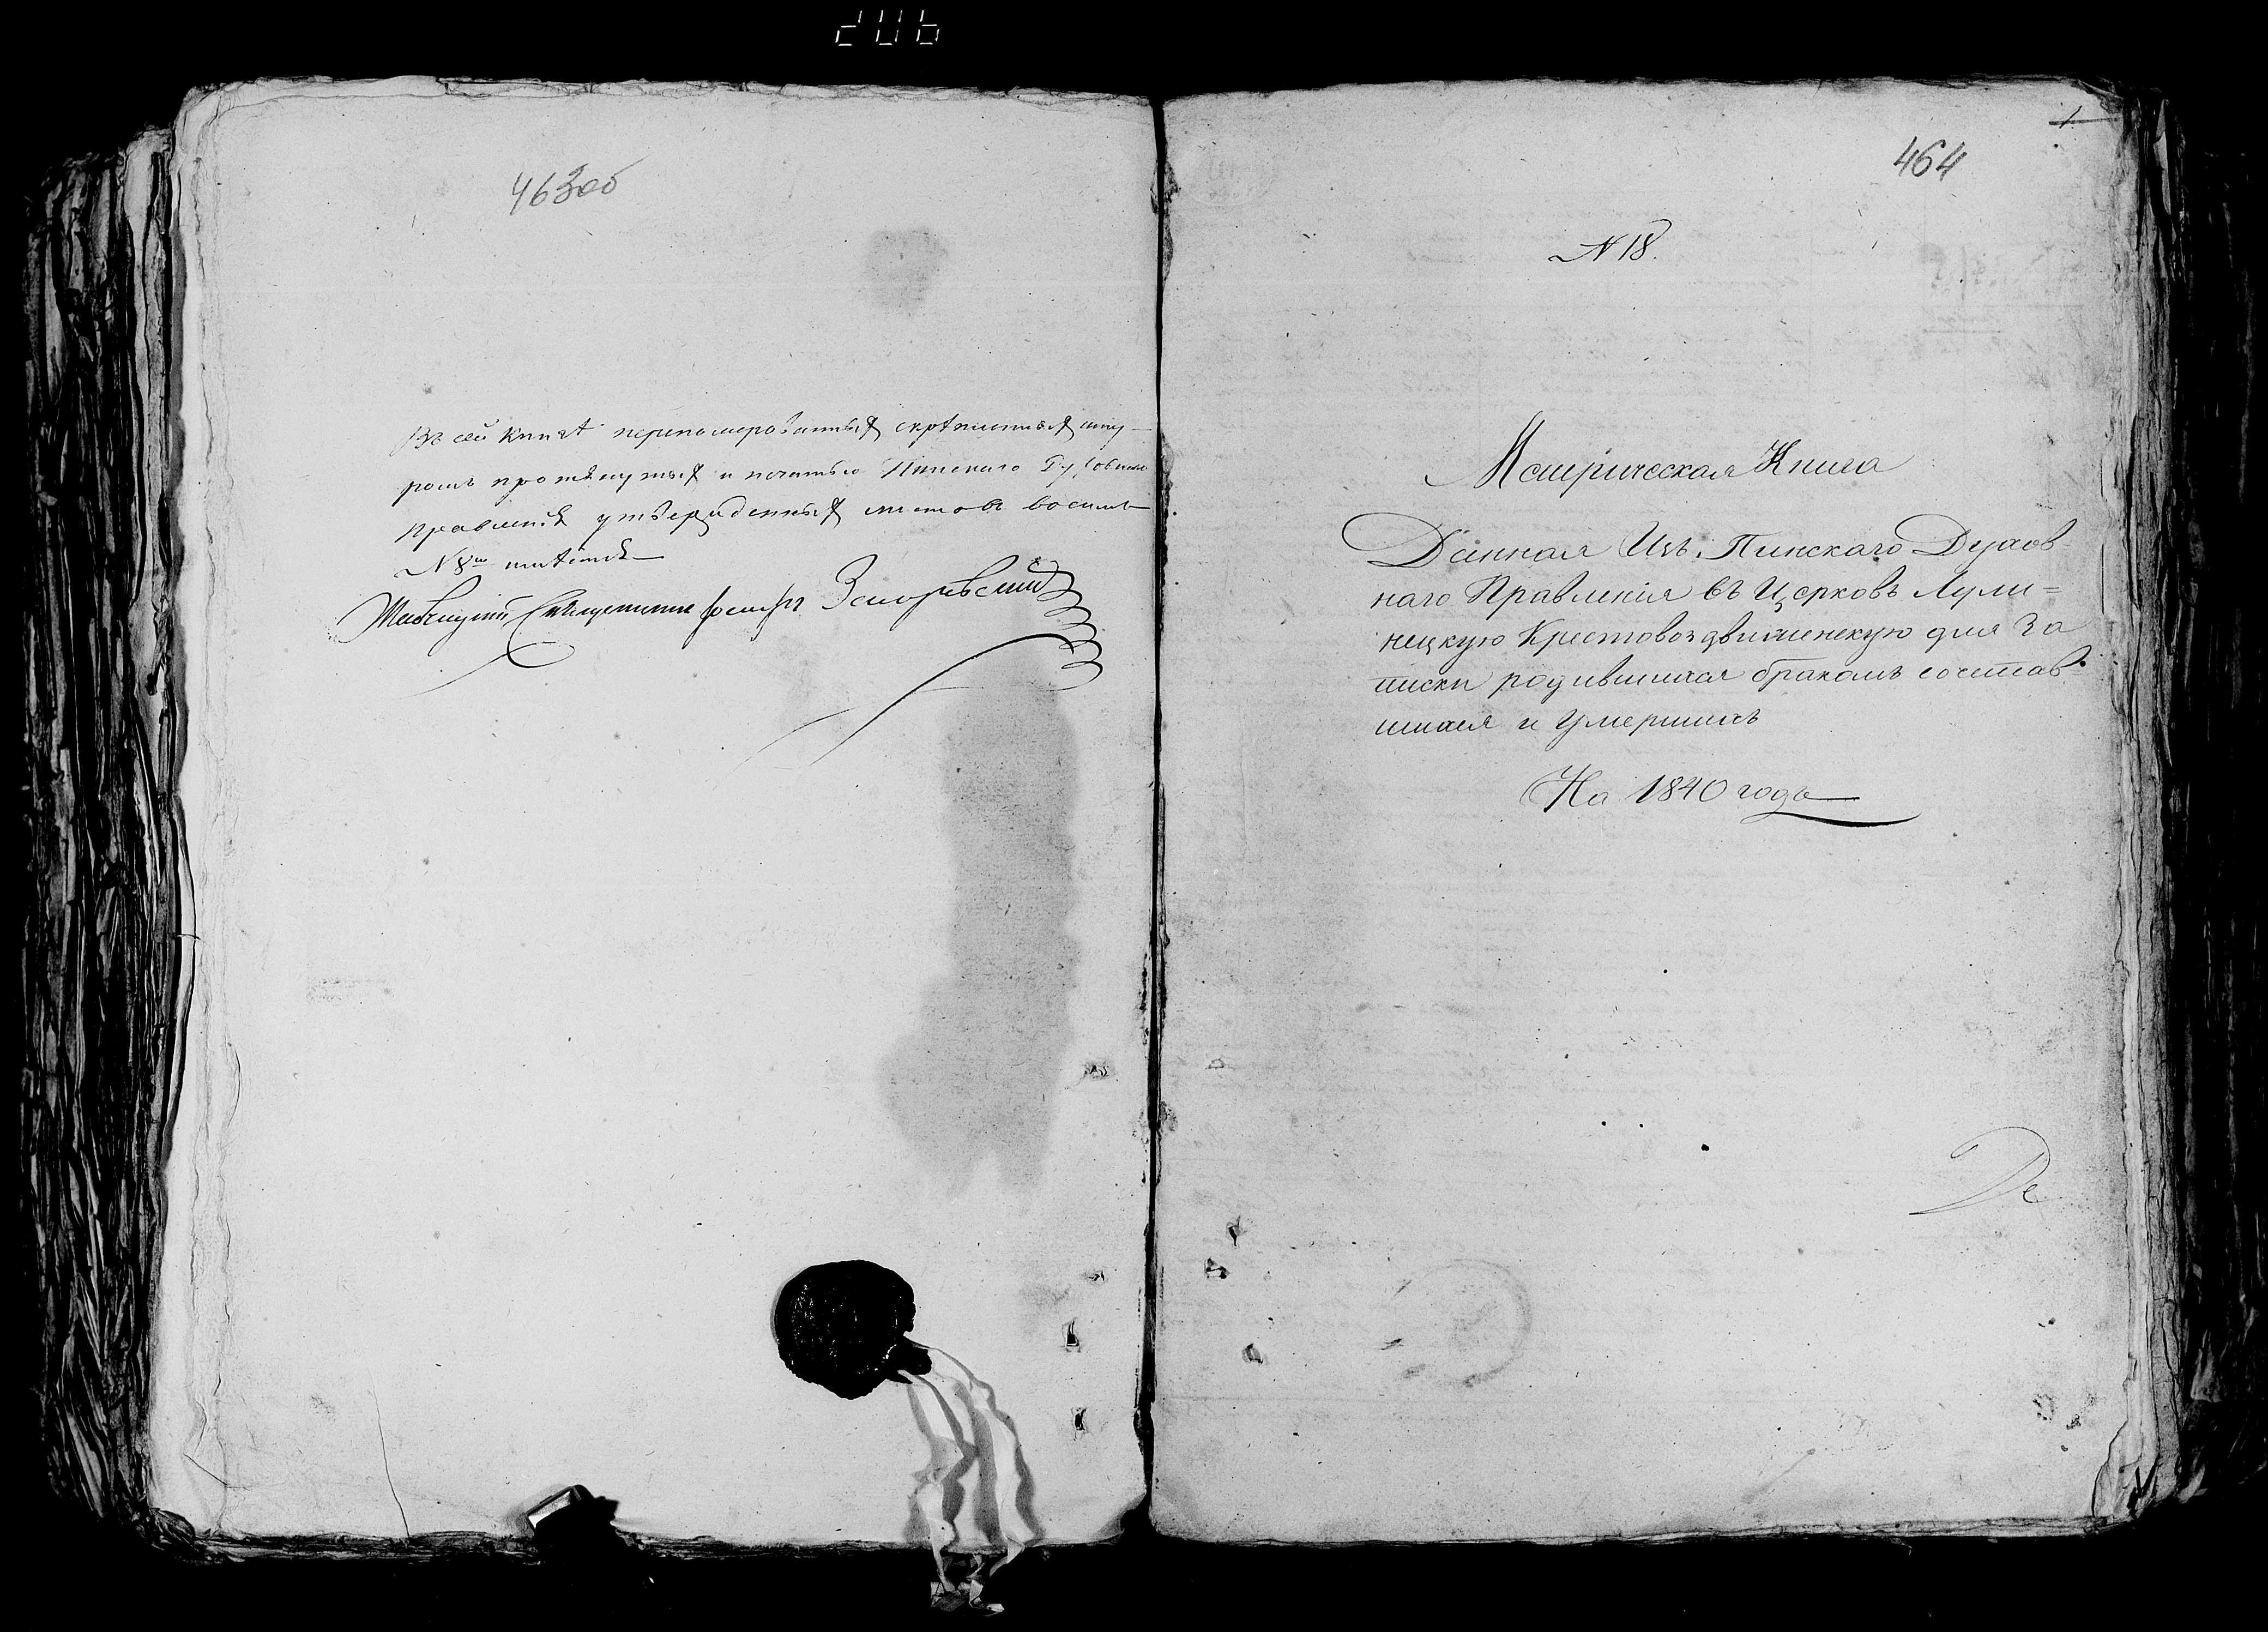 463об
Въ сей книгѣ перенумерованныхъ скрѣпленныхъ шну-
ромъ протянутыхъ и печатью Пинскаго Духовнаго
Правленія утвержденныхъ листовъ восемь
N 8
Священникъ
464
1
N 18.
Метрическая Книга
Данная Изъ Пинскаго Духов-
наго Правленія въ Церковь Лули=
нецкую Крестовоздвиженскую для за
писки родившихся бракомъ состав-
шихся и умершихъ
На 1840 годъ